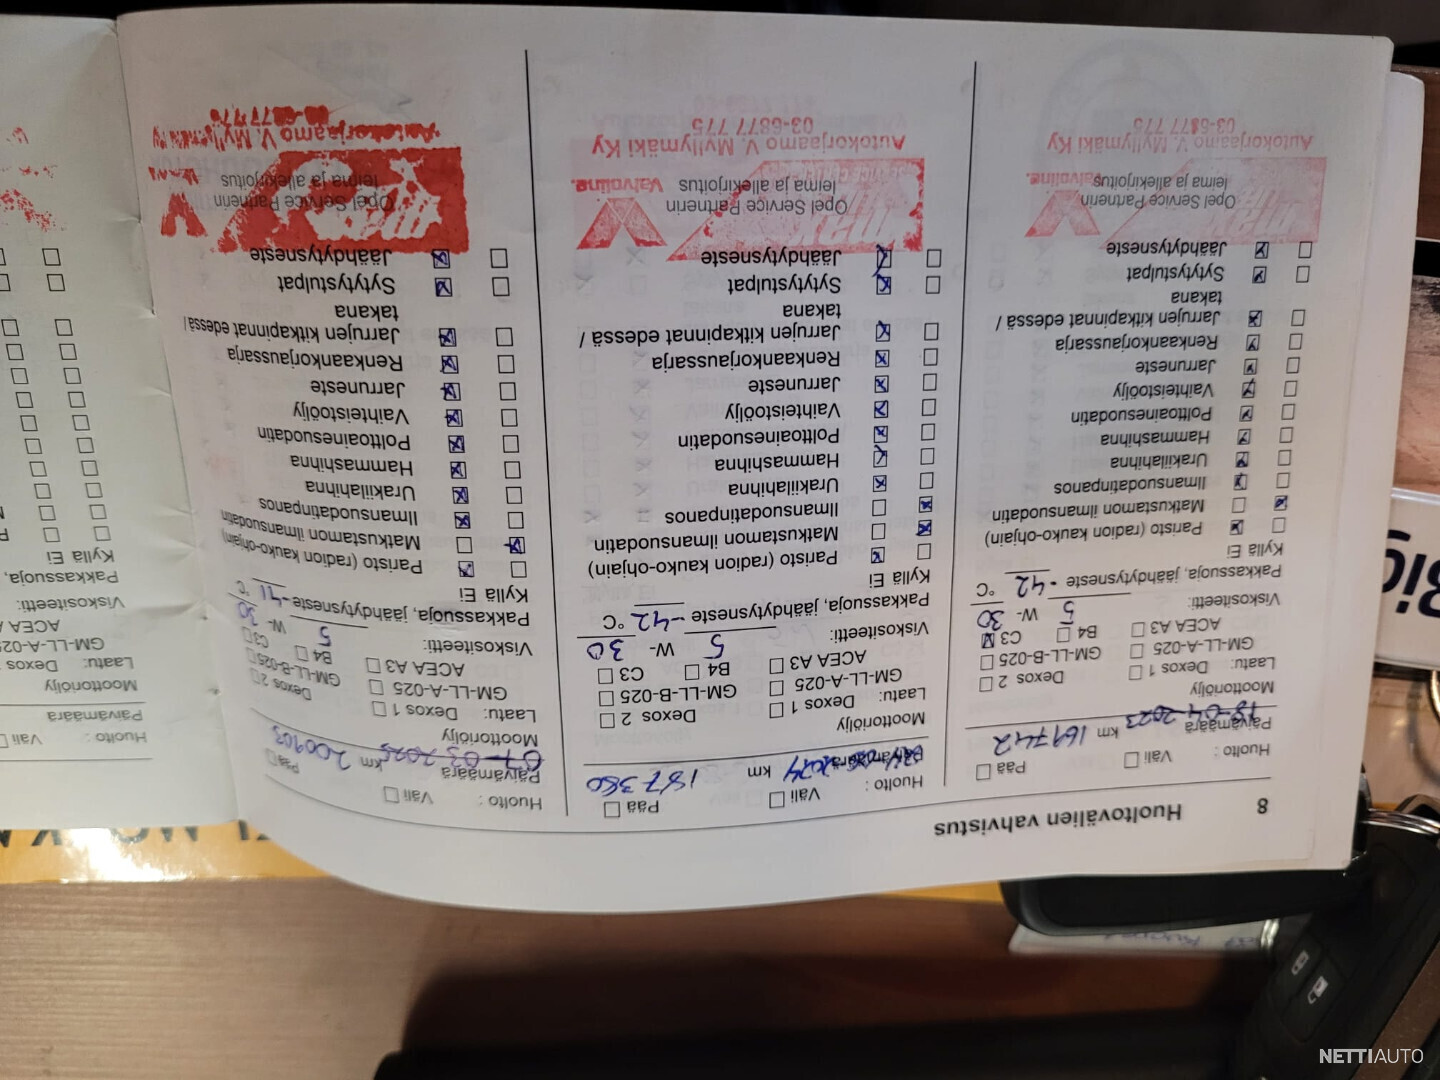 8 Huoltovälien vahvistus
Huolto: Väli Pää
Päivämäärä 18-04-2023 km 169742
Moottoriöljy
Laatu: Dexos 1 Dexos 2
GM-LL-A-025 GM-LL-B-025
ACEA A3 B4 C3
Viskositeetti: 5 W- 30
Pakkassuoja, jäähdytysneste -42 °C
Kyllä Ei
Paristo (radion kauko-ohjain)
Matkustamon ilmansuodatin
Ilmansuodatinpanos
Urakiilahihna
Hammashihna
Polttoainesuodatin
Vaihteistoöljy
Jarruneste
Renkaankorjaussarja
Jarrujen kitkapinnat edessä /
takana
Sytytystulpat
Jäähdytysneste
Opel Service Partnerin
leima ja allekirjoitus
Valvoline.
Autokorjaamo V. Myllymäki Ky
03-6877 775
Huolto: Väli Pää
Päivämäärä 2024 km 187380
Moottoriöljy
Laatu: Dexos 1 Dexos 2
GM-LL-A-025 GM-LL-B-025
ACEA A3 B4 C3
Viskositeetti: 5 W- 30
Pakkassuoja, jäähdytysneste -42 °C
Kyllä Ei
Paristo (radion kauko-ohjain)
Matkustamon ilmansuodatin
Ilmansuodatinpanos
Urakiilahihna
Hammashihna
Polttoainesuodatin
Vaihteistoöljy
Jarruneste
Renkaankorjaussarja
Jarrujen kitkapinnat edessä /
takana
Sytytystulpat
Jäähdytysneste
Opel Service Partnerin
leima ja allekirjoitus
Valvoline.
Autokorjaamo V. Myllymäki Ky
03-6877 775
Huolto: Väli Pää
Päivämäärä 07-03-2025 km 200903
Moottoriöljy
Laatu: Dexos 1 Dexos 2
GM-LL-A-025 GM-LL-B-025
ACEA A3 B4 C3
Viskositeetti: 5 W- 30
Pakkassuoja, jäähdytysneste -41 °C
Kyllä Ei
Paristo (radion kauko-ohjain)
Matkustamon ilmansuodatin
Ilmansuodatinpanos
Urakiilahihna
Hammashihna
Polttoainesuodatin
Vaihteistoöljy
Jarruneste
Renkaankorjaussarja
Jarrujen kitkapinnat edessä /
takana
Sytytystulpat
Jäähdytysneste
Opel Service Partnerin
leima ja allekirjoitus
Autokorjaamo V. Myllymäki
Huolto: Väli
Päivämäärä
Moottoriöljy
Laatu: Dexos
GM-LL-A-025
ACEA A
Viskositeetti:
Pakkassuoja,
Kyllä Ei
Big
NETTIAUTO